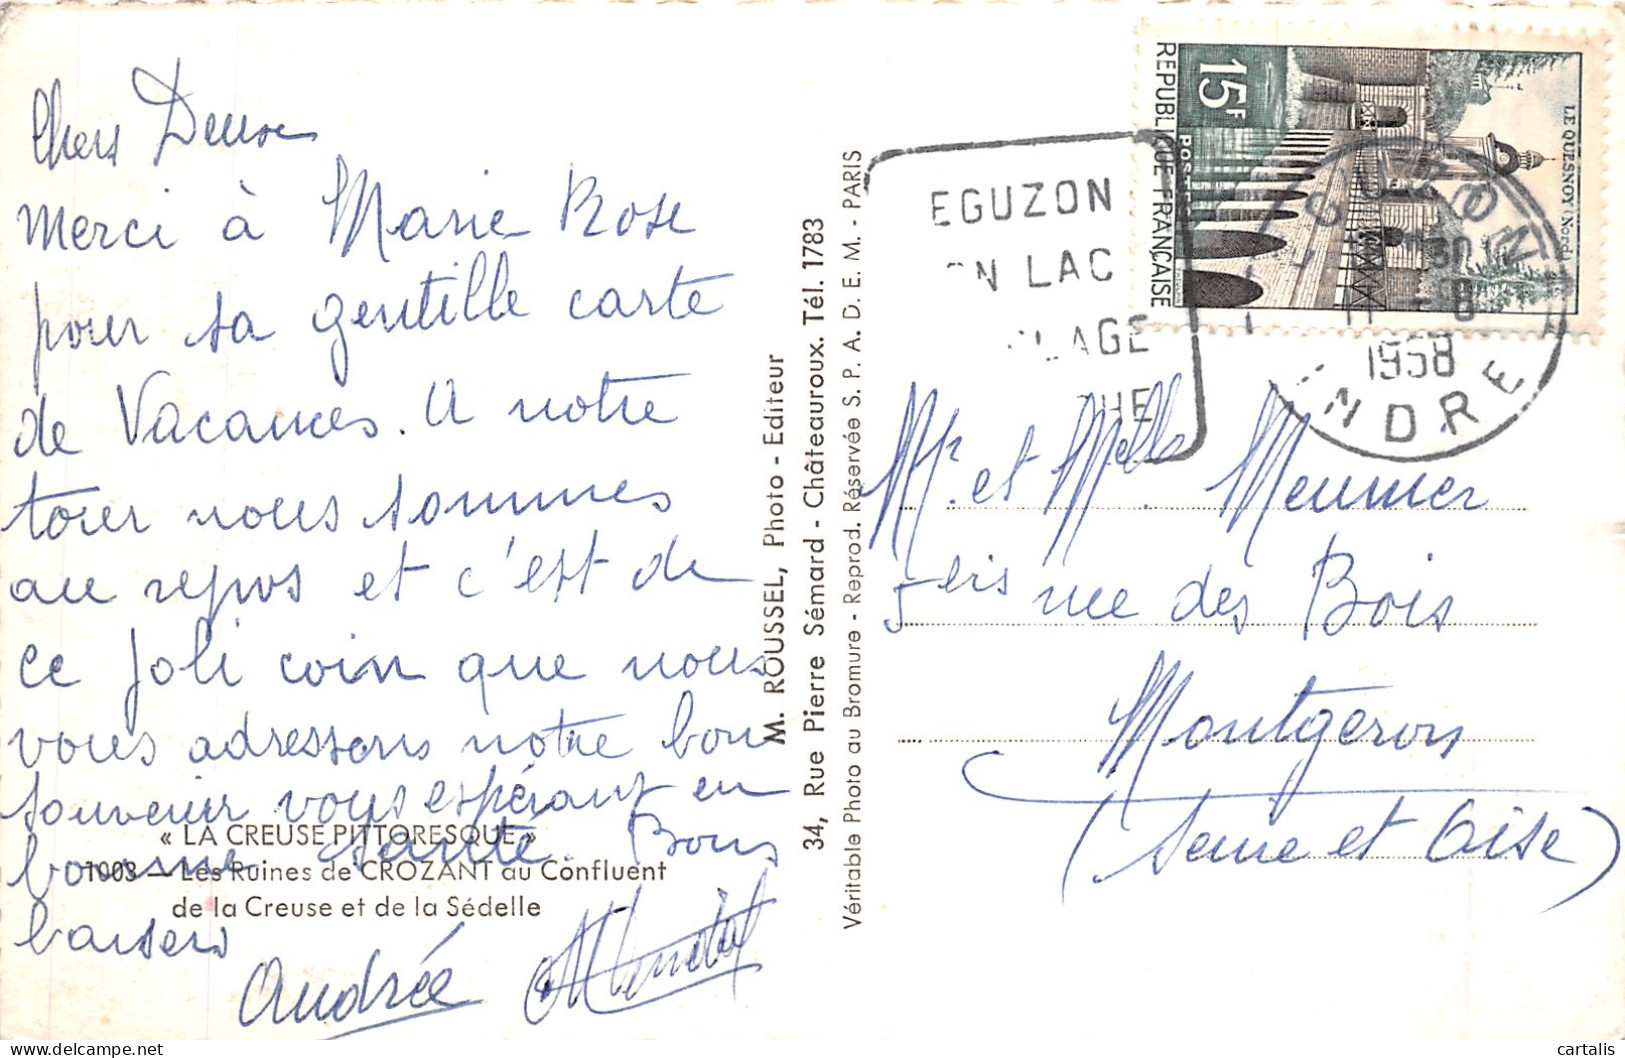 Chers Deux
Merci à Marie Rose
pour sa gentille carte
de Vacances. A notre
tour nous sommes
au repos et c'est de
ce joli coin que nous
vous adressons notre bon
souvenir vous espérant en
bonne santé. Bons
baisers
Andrée
« LA CREUSE PITTORESQUE »
1003 — Les Ruines de CROZANT au Confluent
de la Creuse et de la Sédelle
M. ROUSSEL, Photo - Editeur
34, Rue Pierre Sémard - Châteauroux. Tél. 1783
Véritable Photo au Bromure - Reprod. Réservée S. P. A. D. E. M. - PARIS
EGUZON
ON LAC
LAGE
HE
EGUZON
1958
INDRE
REPUBLIQUE FRANÇAISE
15F
POSTES
LE QUESNOY (Nord)
Mr. et Melle Meunier
5 bis rue des Bois
Montgeron
(Seine et Oise)
cartalis